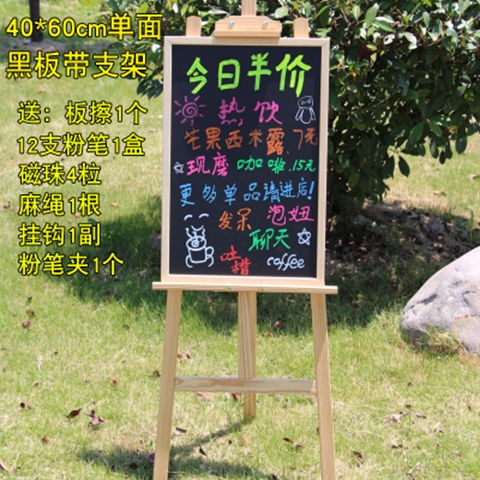 40*60cm单面
黑板带支架
送：板擦1个
12支粉笔1盒
磁珠4粒
麻绳1根
挂钩1副
粉笔夹1个
今日半价
热饮
芒果西米露.7元
现磨咖啡.15元
更多单品请进店!
发呆 泡妞
聊天
吐槽 coffee